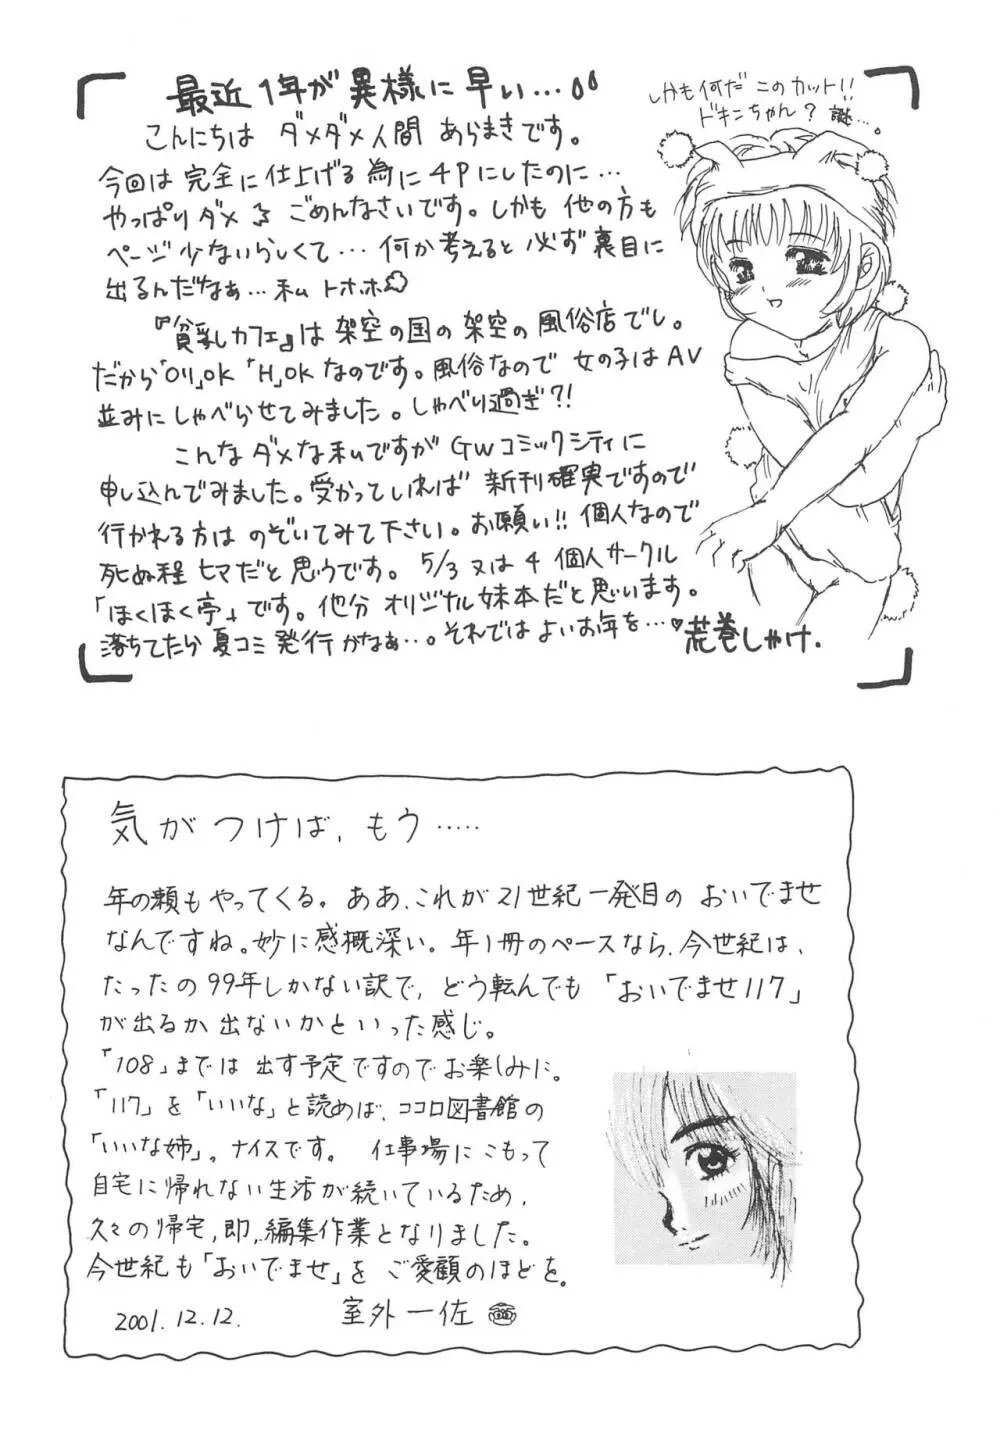 最近1年が異様に早い…
しかも何だ このカット!!
ドキンちゃん? 謎…。
こんにちは ダメダメ人間 あらまきです。
今回は 完全に仕上げる為に 4Pにしたのに…
やっぱりダメ ごめんなさいです。しかも 他の方も
ページ少ないらしくて… 何か考えると 必ず裏目に
出るんだなぁ…私 トホホ
『貧乳カフェ』は架空の国の架空の風俗店でし。
だから「ロリ」OK 「H」OKなのです。風俗なので 女の子はAV
並みにしゃべらせてみました。しゃべり過ぎ?!
こんなダメな私ですが GWコミックシティに
申し込んでみました。受かっていれば 新刊確実ですので
行かれる方は のぞいてみて下さい。お願い!! 個人なので
死ぬ程 ヒマだと思うです。 5/3 又は 4 個人サークル
「ほくほく亭」です。他分 オリジナル妹本だと思います。
落ちてたら 夏コミ発行かなぁ…。それでは よいお年を…♥ 荒巻しゃけ.
気がつけば、もう……
年の瀬もやってくる。ああ、これが21世紀一発目の おいでませ
なんですね。妙に感慨深い。年1冊のペースなら、今世紀は、
たったの99年しかない訳で、どう転んでも 「おいでませ117」
が出るか出ないかといった感じ。
「108」までは 出す予定ですのでお楽しみに。
「117」を「いいな」と読めば、ココロ図書館の
「いいな姉」。ナイスです。 仕事場に こもって
自宅に帰れない生活が続いているため、
久々の帰宅、即、編集作業となりました。
今世紀も「おいでませ」を ご愛顧のほどを。
2001.12.12. 室外一佐